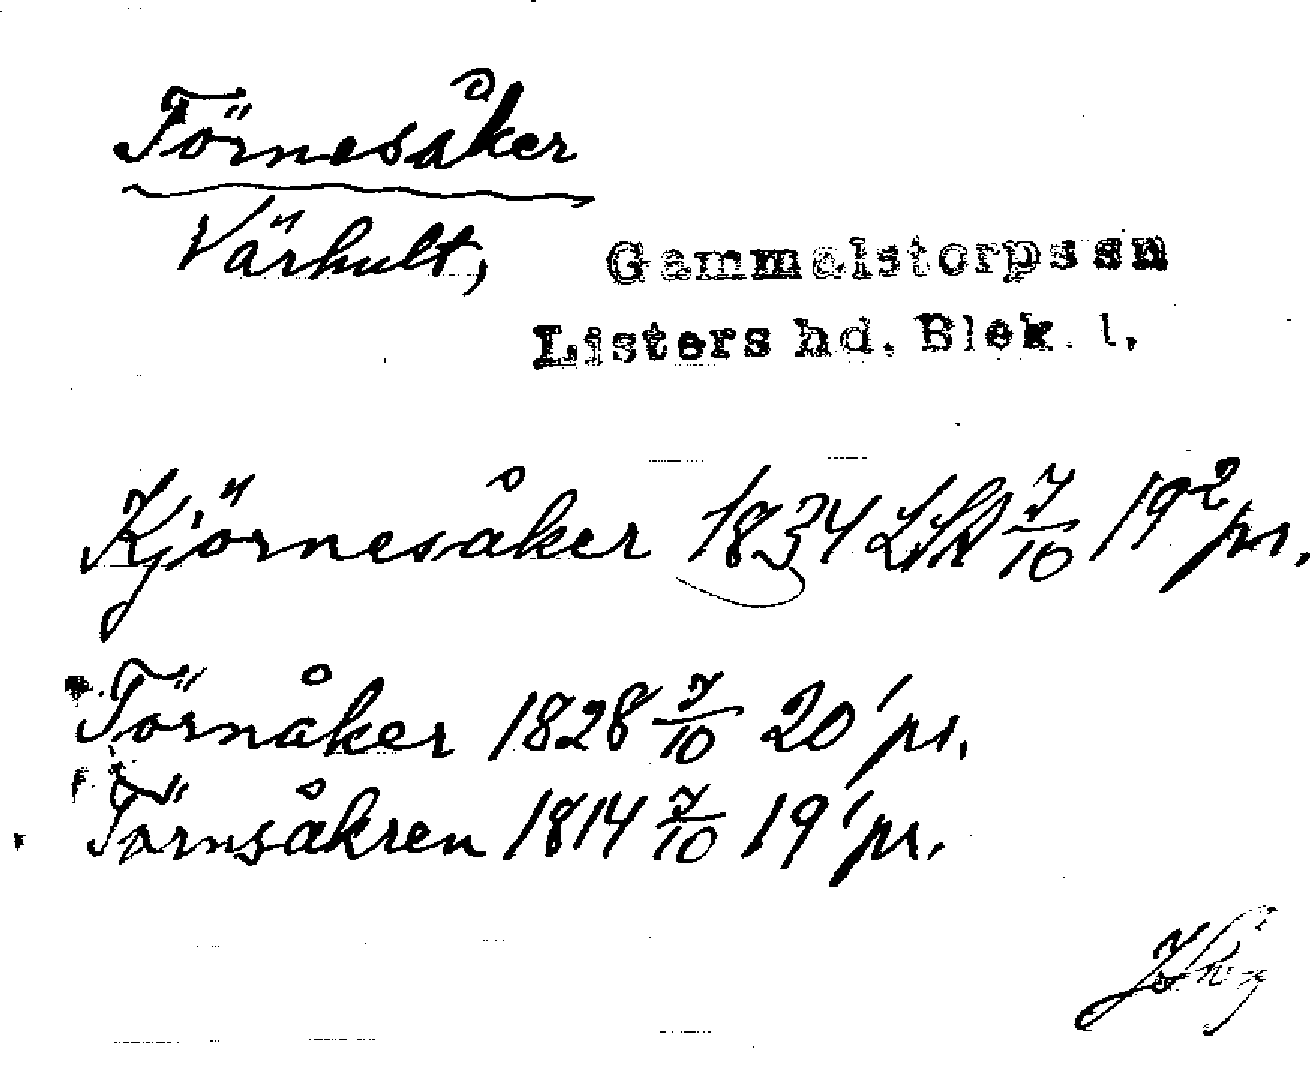 Törnesåker
Värhult, Gammalstorps sn
Listers hd. Blek. l.
Kjörnesåker 1834 LSA 7/10 19² pr.
Törnåker 1828 7/10 20' pr.
Törnsåkren 1814 7/10 19' pr.